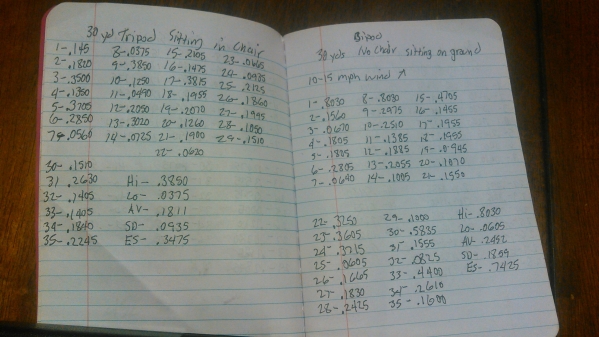 30 yds Tripod Sitting in Chair
1- .145 8- .0375 15- .2105 23- .0665
2- .1820 9- .3850 16- .1475 24- .0985
3- .3500 10- .1250 17- .3815 25- .2125
4- .1350 11- .0490 18- .1955 26- .1860
5- .3705 12- .2050 19- .2070 27- .1995
6- .2850 13- .3020 20- .1260 28- .1050
7- .0560 14- .0725 21- .1900 29- .1510
22- .0620
30- .1570
31- .2630 Hi- .3850
32- .1405 Lo- .0375
33- .1405 AV- .1811
34- .1840 SD- .0935
35- .2245 ES- .3475
Bipod
30 yds No Chair sitting on ground
10-15 mph wind ↗
1- .8030 8- .8030 15- .4705
2- .1560 9- .2975 16- .1455
3- .0670 10- .2510 17- .1955
4- .1805 11- .1385 18- .1955
5- .1805 12- .1885 15- .0945
6- .2805 13- .2055 20- .1070
7- .0640 14- .1005 21- .1550
22- .3250 29- .1000 Hi- .8030
23- .3605 30- .5835 Lo- .0605
24- .3715 31- .1555 AV- .2452
25- .0605 32- .0825 SD- .1809
26- .1665 33- .4400 ES- .7425
27- .1830 34- .2610
28- .2425 35- .1600